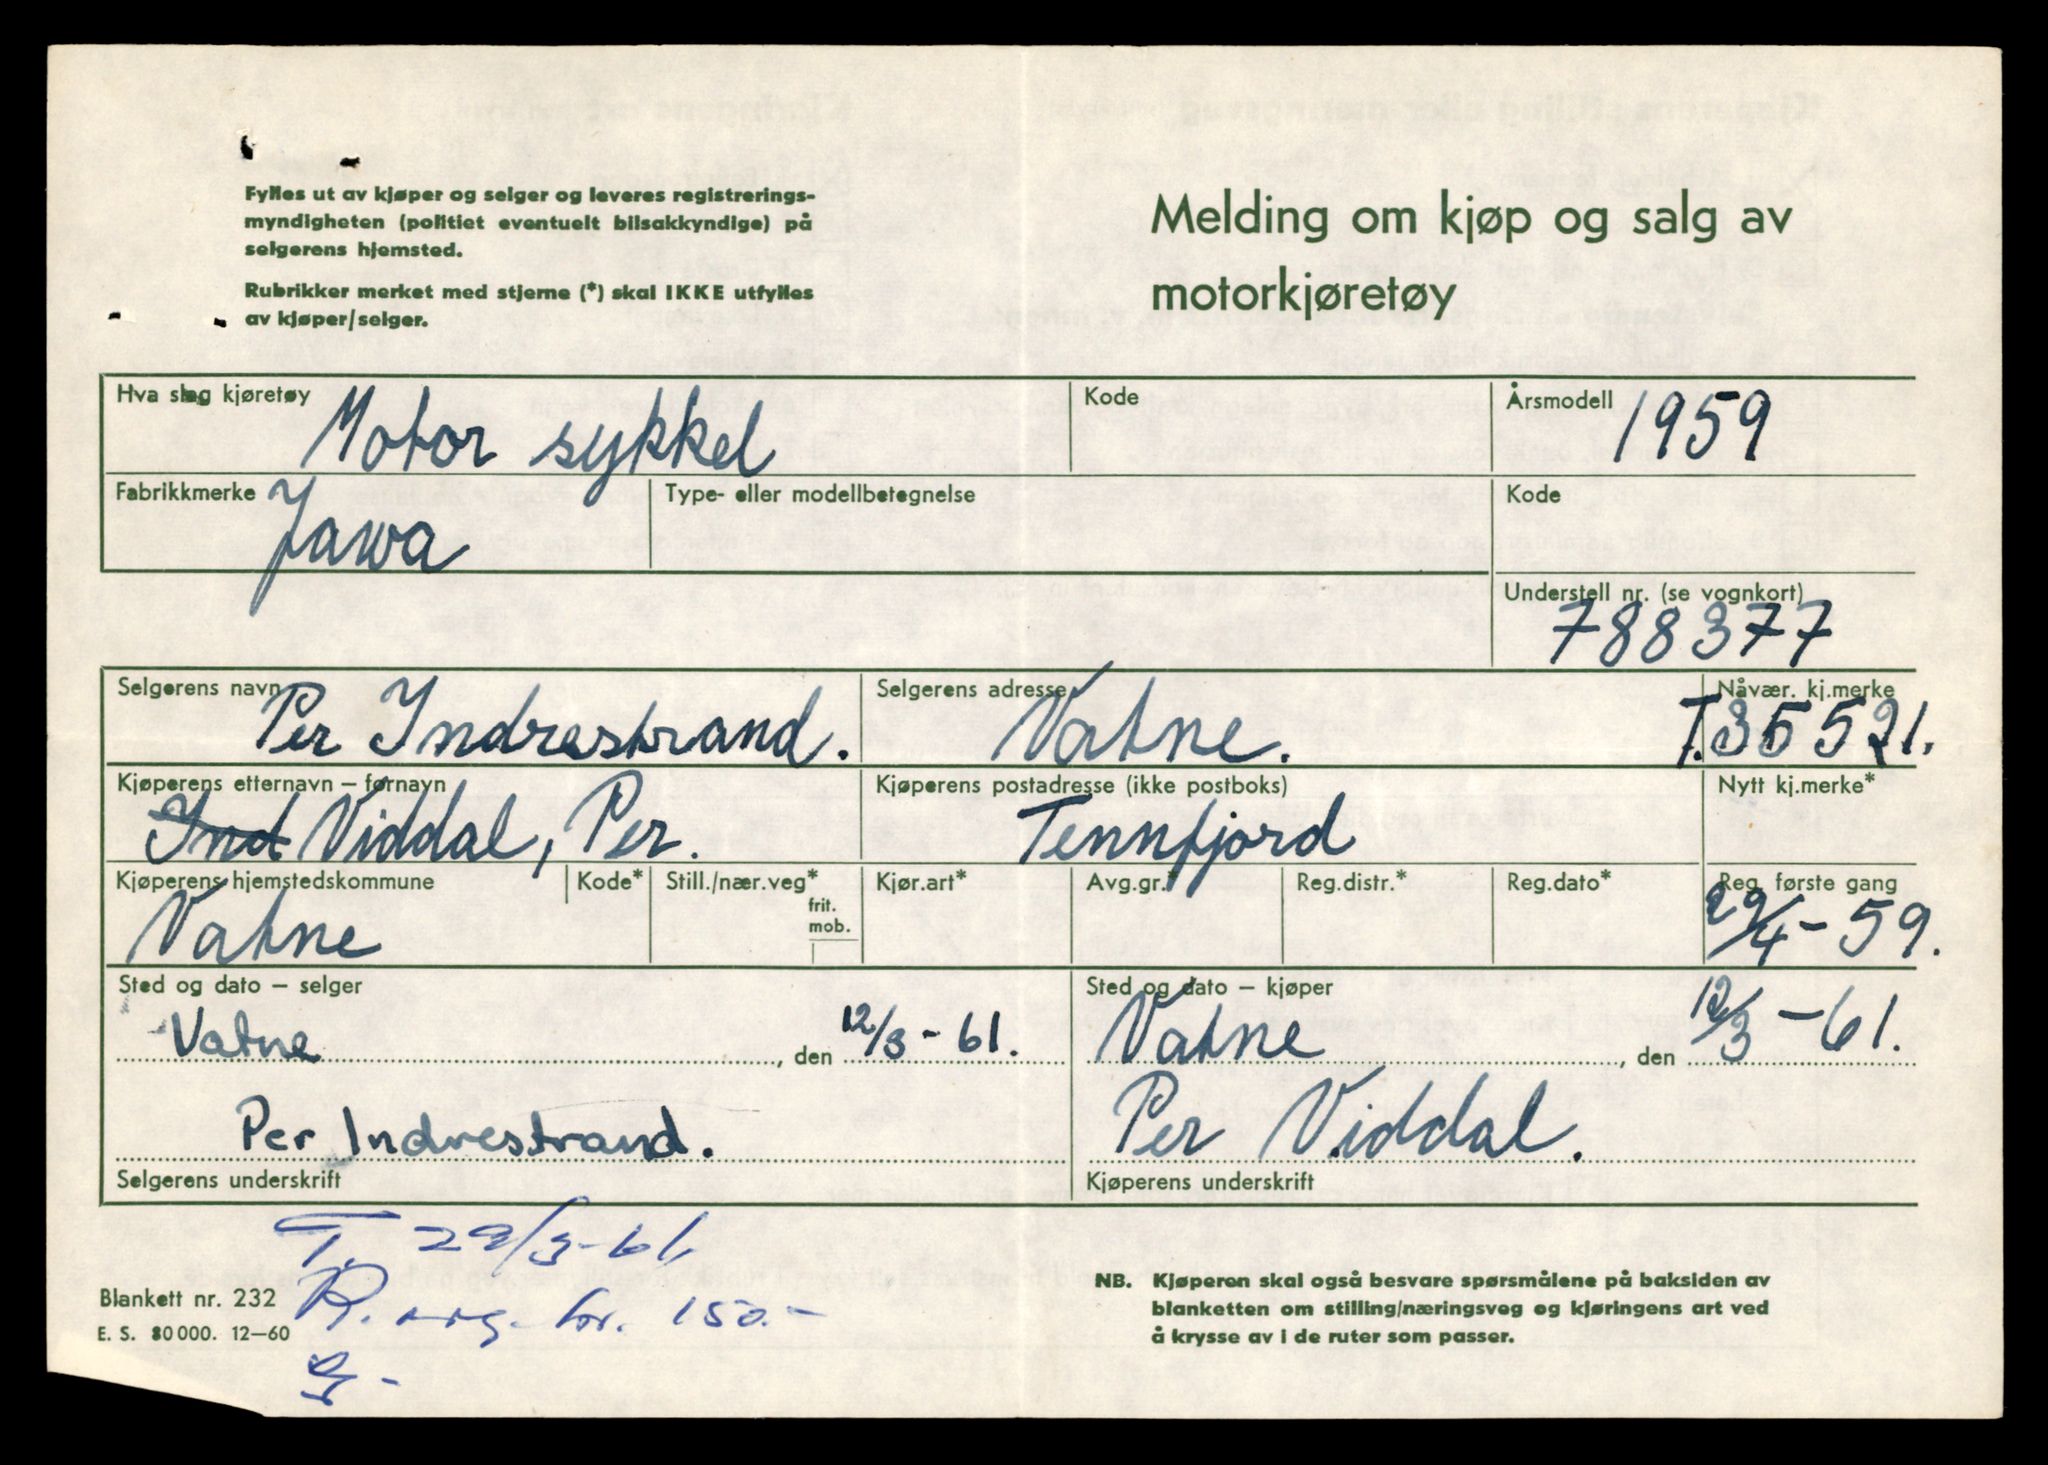 Fylles ut av kjøper og selger og leveres registrerings-
myndigheten (politiet eventuelt bilsakkyndige) på
selgerens hjemsted.
Rubrikker merket med stjerne (*) skal IKKE utfylles
av kjøper/selger.
Melding om kjøp og salg av
motorkjøretøy
Hva slag kjøretøy Motor sykkel
Kode
Årsmodell 1959
Fabrikkmerke Jawa
Type- eller modellbetegnelse
Kode
Understell nr. (se vognkort)
788377
Selgerens navn Per Indrestrand.
Selgerens adresse Vatne.
Nåvær. kj.merke
T.35521.
Kjøperens etternavn – fornavn
Ind Viddal, Per.
Kjøperens postadresse (ikke postboks)
Tennfjord
Nytt kj.merke*
Kjøperens hjemstedskommune
Vatne
Kode*
Still./nær.veg*
frit.
mob.
Kjør.art*
Avg.gr.*
Reg.distr.*
Reg.dato*
Reg. første gang
29/4-59.
Sted og dato – selger
Vatne, den 12/3-61.
Per Indrestrand.
Selgerens underskrift
Sted og dato – kjøper
Vatne, den 12/3-61.
Per Viddal.
Kjøperens underskrift
T. 29/3-61.
R. kr. 150.-
Blankett nr. 232
E. S. 80 000. 12—60
NB. Kjøperen skal også besvare spørsmålene på baksiden av
blanketten om stilling/næringsveg og kjøringens art ved
å krysse av i de ruter som passer.